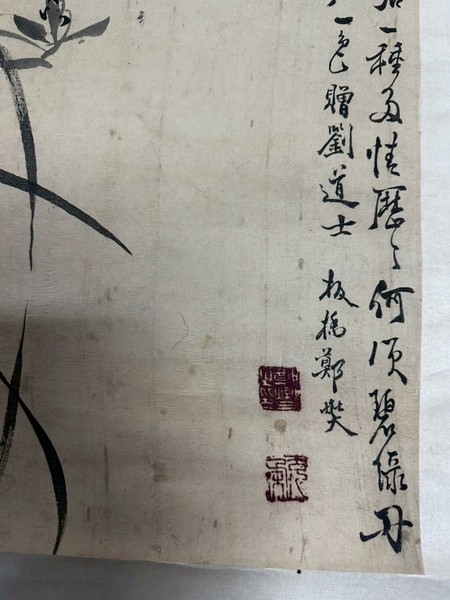 一種多情歷〻何須碧綠丹
一色贈劉道士 板橋鄭燮